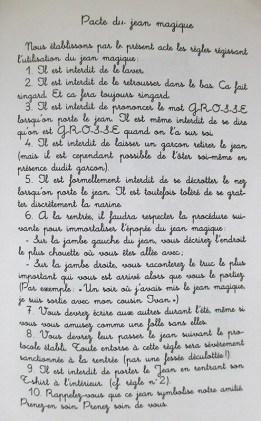 Pacte du jean magique
Nous établissons par le présent acte les règles régissant
l'utilisation du jean magique :
1. Il est interdit de le laver.
2. Il est interdit de le retrousser dans le bas. Ca fait
ringard. Et ca fera toujours ringard.
3. Il est interdit de prononcer le mot G.R.O.S.S.E
lorsqu'on porte le jean. Il est même interdit de se dire
qu'on est G.R.O.S.S.E quand on l'a sur soi.
4. Il est interdit de laisser un garcon retirer le jean
(mais il est cependant possible de l'ôter soi-même en
présence dudit garcon).
5. Il est formellement interdit de se décrotter le nez
lorsqu'on porte le jean. Il est toutefois toléré de se grat-
ter discrètement la narine.
6. A la rentrée, il faudra respecter la procédure sui-
vante pour immortaliser l'épopée du jean magique :
- Sur la jambe gauche du jean, vous décrirez l'endroit
le plus chouette où vous êtes allée avec ;
- Sur la jambe droite, vous raconterez le truc le plus
important qui vous est arrivé alors que vous le portiez.
(Par exemple : «Un soir où j'avais mis le jean magique,
je suis sortie avec mon cousin Ivan.»)
7. Vous devrez écrire aux autres durant l'été, même si
vous vous amusez comme une folle sans elles.
8. Vous devrez leur passer le jean suivant le pro-
tocole établi. Toute entorse à cette règle sera sévèrement
sanctionnée à la rentrée (par une fessée déculottée !)
9. Il est interdit de porter le Jean en rentrant son
T-shirt à l'intérieur. (cf. règle n°2).
10. Rappelez-vous que ce jean symbolise notre amitié.
Prenez-en soin. Prenez soin de vous.